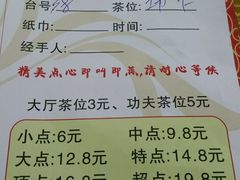 台号: 茶位:
纸巾:
经手人:
精美点心即叫即蒸,请耐心等候
大厅茶位3元、功夫茶位5元
小点:6元 中点:9.8元
大点:12.8元 特点:14.8元
顶点:16.8元 超点:19.8元